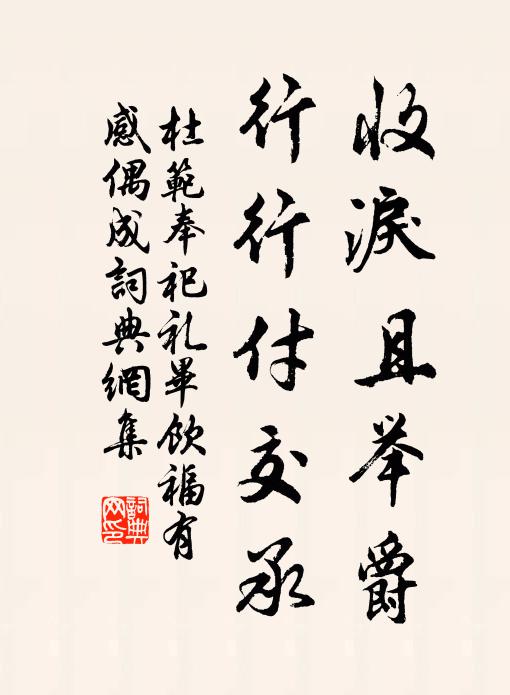 收淚且举爵
行行付交承
杜範奉祀礼畢飲福有
感偶成詞典網集
詞典
网印